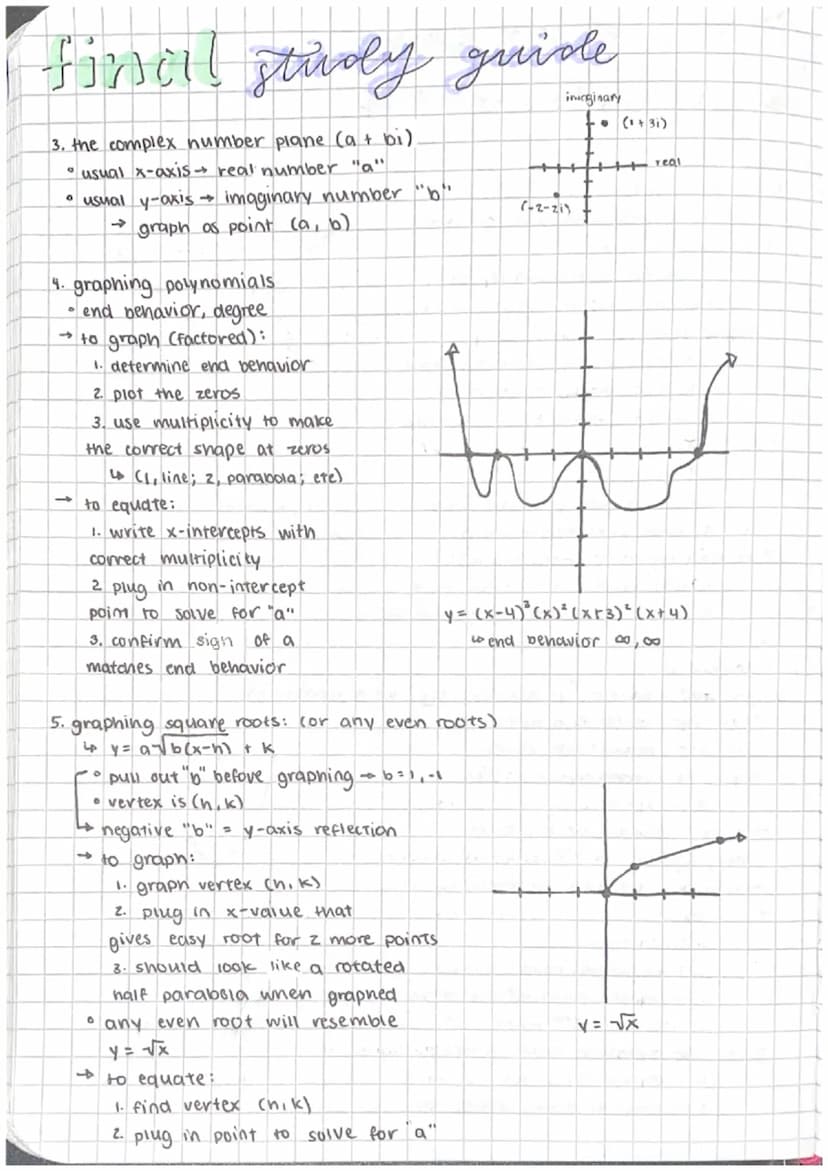 final study guide
3. the complex number plane (a + bi)
° usual x-axis → real number "a"
° usual y-axis → imaginary number "b"
→ graph as point (a, b)
imaginary
(1 + 3i)
real
(-2-2i)
4. graphing polynomials
° end behavior, degree
→ to graph (factored):
1. determine end behavior
2. plot the zeros
3. use multiplicity to make
the correct shape at zeros
↳ (1, line; 2, parabola; etc)
→ to equate:
1. write x-intercepts with
correct multiplicity
2 plug in non-intercept
point to solve for "a"
3. confirm sign of a
matches end behavior
y = (x-4)³(x)²(x+3)²(x+4)
↳ end behavior ∞, ∞
5. graphing square roots: (or any even roots)
↳ y = a√b(x-h) + k
° pull out "b" before graphing → b = 1, -1
° vertex is (h, k)
↳ negative "b" = y-axis reflection
→ to graph:
1. graph vertex (h, k)
2. plug in x-value that
gives easy root for 2 more points
3. should look like a rotated
half parabola when graphed
° any even root will resemble
y = √x
→ to equate:
1. find vertex (h, k)
2. plug in point to solve for "a"
y = √x